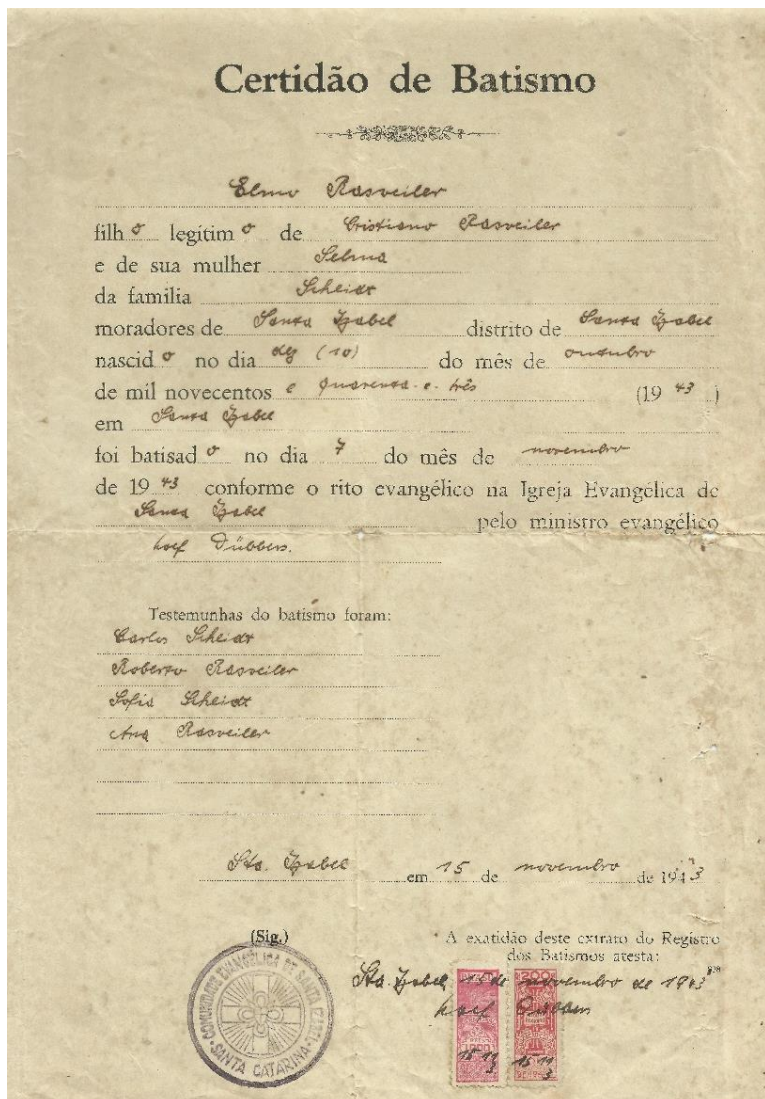 Certidão de Batismo
Elmo Rasveiler
filho legítimo de Cristiano Rasveiler
e de sua mulher Selma
da familia Scheidt
moradores de Santa Izabel distrito de Santa Izabel
nascido no dia dez (10) do mês de outubro
de mil novecentos e quarenta e três (1943)
em Santa Izabel
foi batisado no dia 7 do mês de novembro
de 1943 conforme o rito evangélico na Igreja Evangélica de
Santa Izabel pelo ministro evangélico
Dübbers.
Testemunhas do batismo foram:
Carlos Scheidt
Roberto Rasveiler
Sofia Scheidt
Ana Rasveiler
Sta. Izabel em 15 de novembro de 1943
(Sig.)
A exatidão deste extrato do Registro
dos Batismos atesta:
Sta. Izabel 15 de novembro de 1943
COMUNIDADE EVANGÉLICA DE SANTA IZABEL
SANTA CATARINA
200
15 11 3
15 11 3